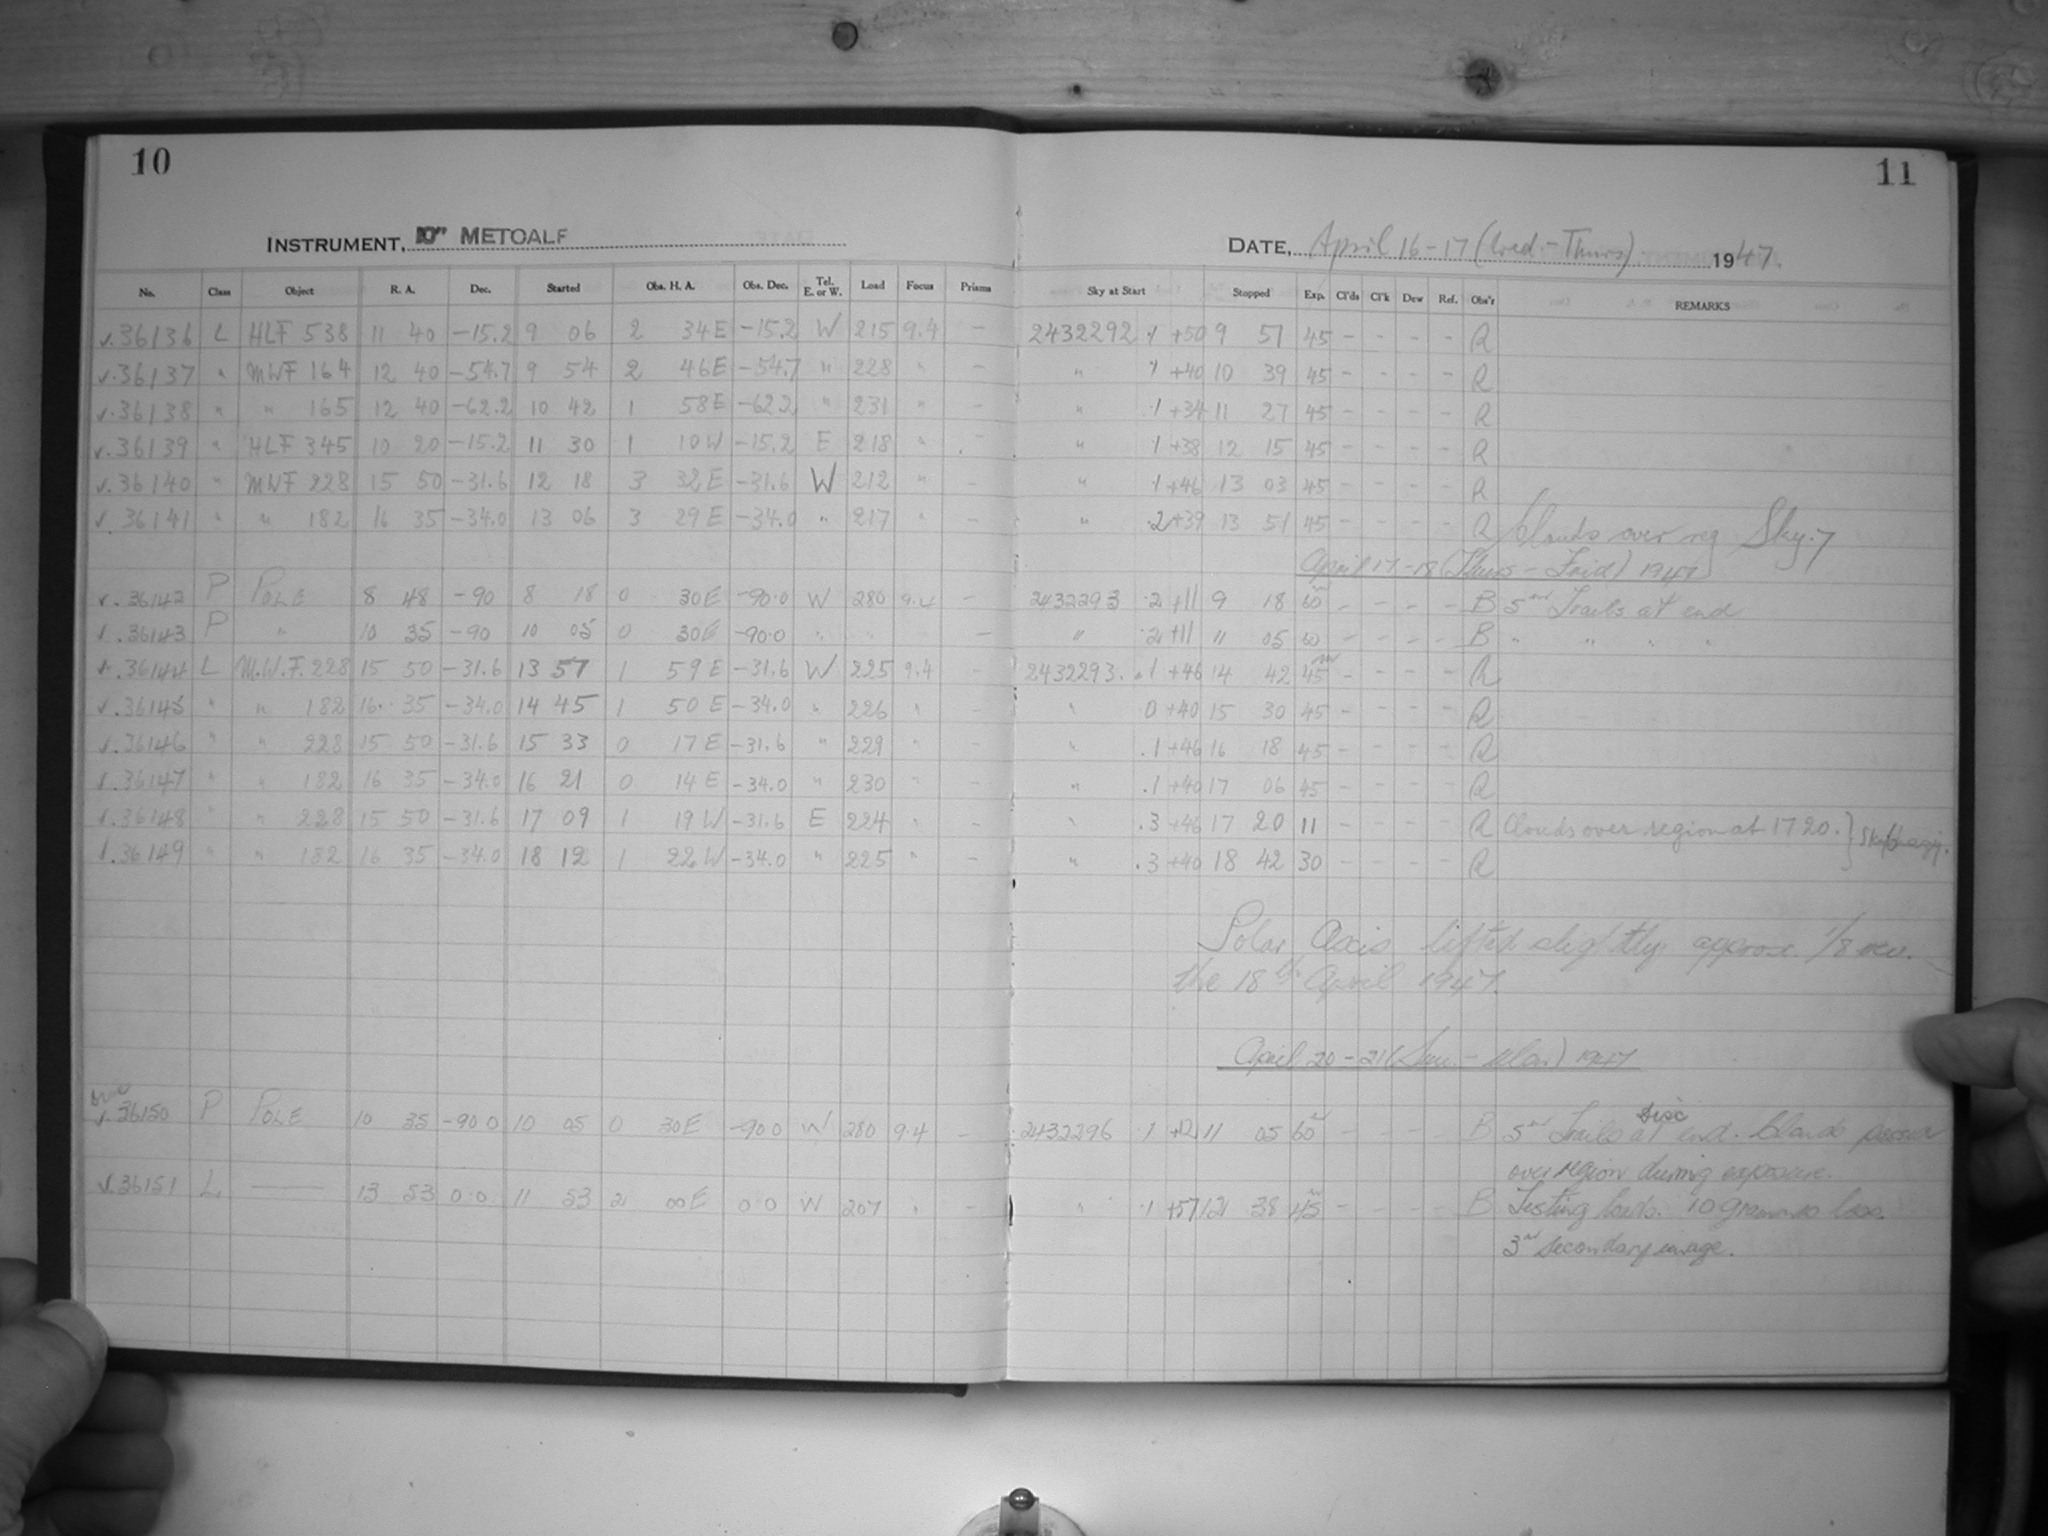 10
11
INSTRUMENT, 10" METCALF
DATE, April 16-17 (Wed.-Thurs) 1947.
No. Class Object R. A. Dec. Started Obs. H. A. Obs. Dec. Tel. E. or W. Load Focus Prisms Sky at Start Stopped Exp. Cl'ds Cl'k Dew Ref. Obs'r REMARKS
v.36136 L HLF 538 11 40 -15.2 9 06 2 34E -15.2 W 215 9.4 - 2432292 .1 +50 9 51 45 - - - - R
v.36137 " MWF 164 12 40 -54.7 9 54 2 46E -54.7 " 228 " - " .1 +40 10 39 45 - - - - R
v.36138 " " 165 12 40 -62.2 10 42 1 58E -62.2 " 231 " - " .1 +34 11 27 45 - - - - R
v.36139 " HLF 345 10 20 -15.2 11 30 1 10W -15.2 E 218 " - " .1 +38 12 15 45 - - - - R
v.36140 " MWF 228 15 50 -31.6 12 18 3 32E -31.6 W 212 " - " .1 +46 13 03 45 - - - - R
v 36141 " " 182 16 35 -34.0 13 06 3 29E -34.0 " 217 " - " .2 +39 13 51 45 - - - - R Clouds over reg Sky .7
April 17-18 (Thurs - Frid) 1947
v.36142 P POLE 8 48 -90 8 18 0 30E -90.0 W 280 9.4 - 2432293 .2 +11 9 18 60 - - - - B 5 Trails at end
v.36143 P " 10 35 -90 10 05 0 30E -90.0 " " " - " .2 +11 11 05 60 - - - - B " " " "
v.36144 L M.W.F. 228 15 50 -31.6 13 57 1 59E -31.6 W 225 9.4 - 2432293. .1 +46 14 42 45 - - - - R
v.36145 " " 182 16 35 -34.0 14 45 1 50E -34.0 " 226 " - " 0 +40 15 30 45 - - - - R
v.36146 " " 228 15 50 -31.6 15 33 0 17E -31.6 " 229 " - " .1 +46 16 18 45 - - - - R
v.36147 " " 182 16 35 -34.0 16 21 0 14E -34.0 " 230 " - " .1 +40 17 06 45 - - - - R
v.36148 " " 228 15 50 -31.6 17 09 1 19W -31.6 E 224 " - " .3 +46 17 20 11 - - - - R Clouds over region at 1720. } Sky hazy.
v.36149 " " 182 16 35 -34.0 18 12 1 22W -34.0 " 225 " - " .3 +40 18 42 30 - - - - R
Polar Axis lifted slightly approx. 1/8 rev.
the 18th April 1947.
April 20-21 (Sun. - Mon) 1947
v.36150 P POLE 10 35 -90 0 10 05 0 30E -90 0 W 280 9.4 - 2432296 .1 +12 11 05 60 - - - - B 5 Trails Disc at end. Clouds passed
over region during exposure.
v.36151 L — 13 53 0.0 11 53 2 00E 0.0 W 207 " - " .1 +57 12 38 45 - - - - B Testing loads. 10 grammes less.
3 secondary image.